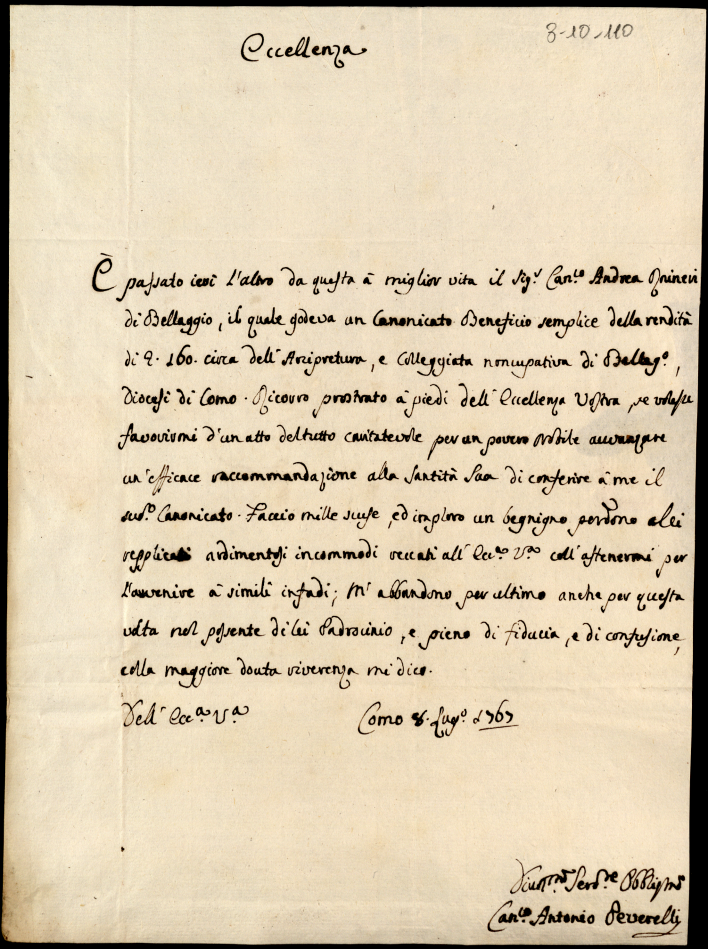 3-10-110
Eccellenza
È passato ieri l'altro da questa à miglior vita il Sig.r Can.co Andrea
di Bellaggio, il quale godeva un Canonicato Beneficio semplice della rendità
di L. 160. circa dell'Arcipretura, e Colleggiata noncupativa di Bellag.o,
Diocesi di Como. Ricorro prostrato à piedi dell'Eccellenza Vostra, se volesse
favorirmi d'un atto del tutto caritatevole per un povero Nobile avvanzare
un'efficace raccommandazione alla Santità Sua di conferire à me il
sud.o Canonicato. Faccio mille scuse, ed imploro un begnigno perdono a lei
repplicati ardimentosi incommodi reccati all'Ecc.a V.a coll'astenermi per
l'avvenire à simili infadi; M'abbandono per ultimo anche per questa
volta nel possente di lei Padrocinio, e pieno di fiducia, e di confusione,
colla maggiore douta riverenza mi dico.
Dell'Ecc.a V.a Como 8. Lug.o 1767
Div.mo Serv.re Obblig.mo
Can.co Antonio Peverelli